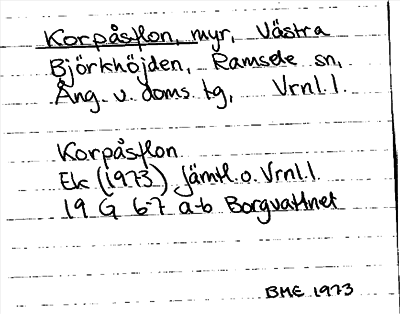 Korpåsflon, myr, Västra
Björkhöjden, Ramsele sn,
Ång. v. doms. tg, Vrnl.l.
Korpåsflon
Ek (1973) Jämtl. o. Vrnl.l.
19 G 6-7 a-b Borgvattnet
BME 1973